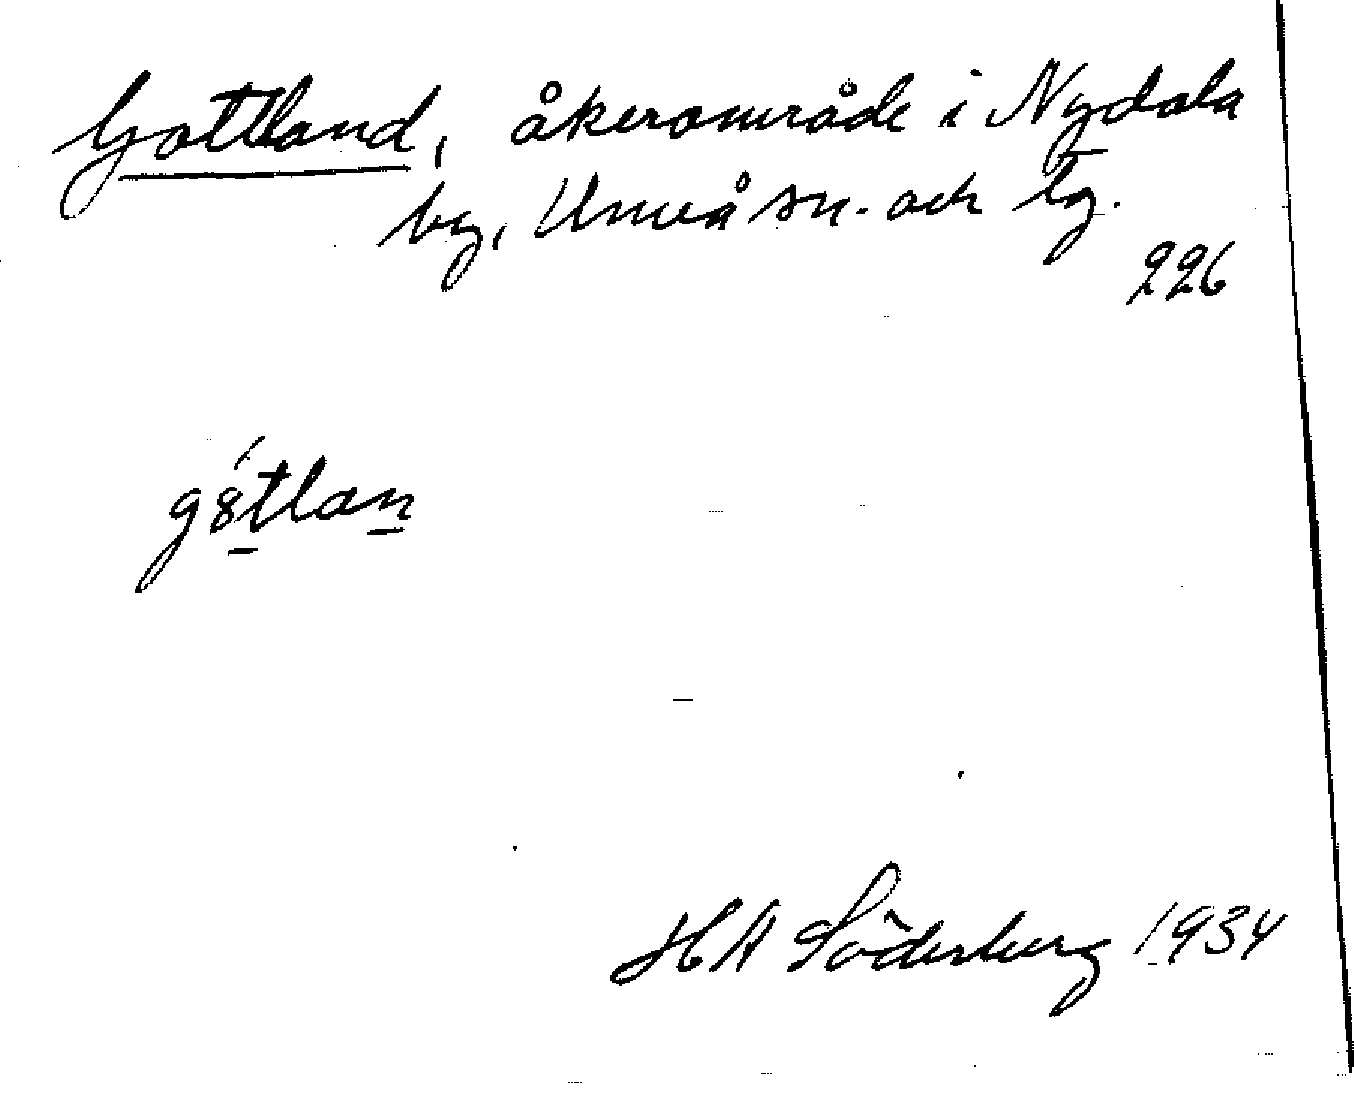 Gottland, åkerområde i Nydala
by, Umeå sn. och lg.
226
gȣ́tlan
HA Söderberg 1934